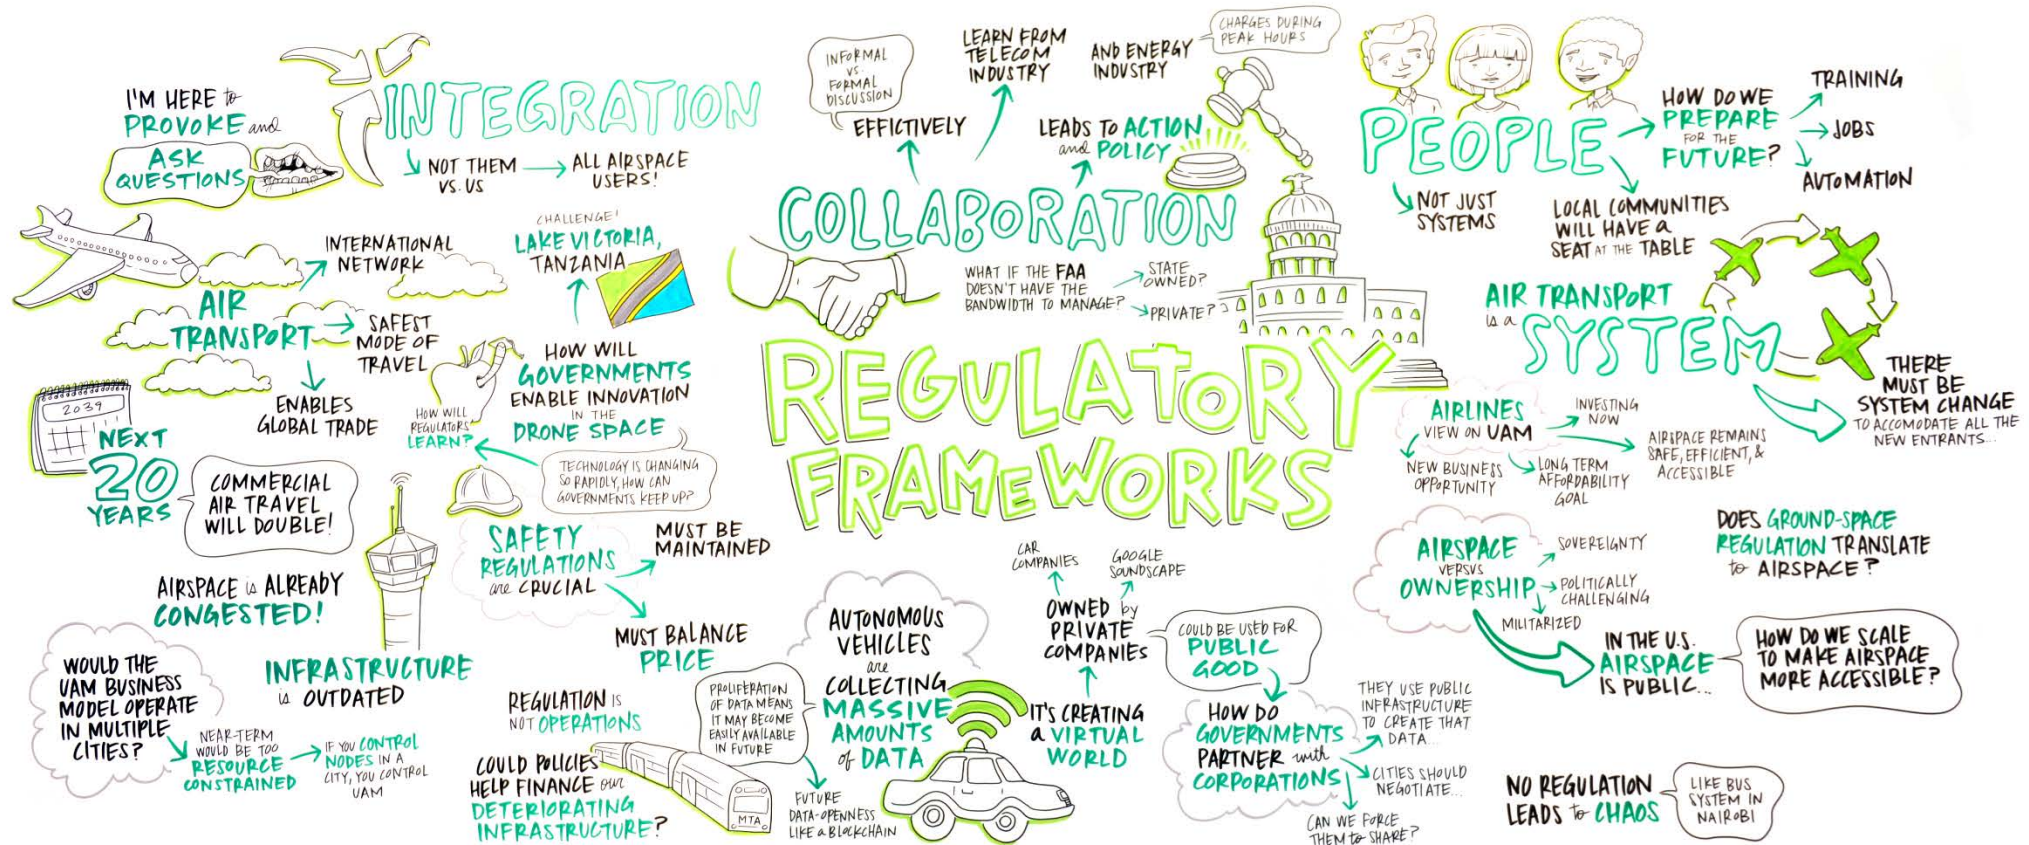 I'M HERE to
PROVOKE and
ASK
QUESTIONS
INTEGRATION
NOT THEM
VS. US
ALL AIRSPACE
USERS!
AIR
TRANSPORT
INTERNATIONAL
NETWORK
SAFEST
MODE OF
TRAVEL
ENABLES
GLOBAL TRADE
CHALLENGE!
LAKE VICTORIA,
TANZANIA
HOW WILL
GOVERNMENTS
ENABLE INNOVATION
IN THE
DRONE SPACE
HOW WILL
REGULATORS
LEARN?
TECHNOLOGY IS CHANGING
SO RAPIDLY, HOW CAN
GOVERNMENTS KEEP UP?
2039
NEXT
20
YEARS
COMMERCIAL
AIR TRAVEL
WILL DOUBLE!
AIRSPACE is ALREADY
CONGESTED!
INFRASTRUCTURE
is OUTDATED
WOULD THE
UAM BUSINESS
MODEL OPERATE
IN MULTIPLE
CITIES?
NEAR-TERM
WOULD BE TOO
RESOURCE
CONSTRAINED
IF YOU CONTROL
NODES IN A
CITY, YOU CONTROL
UAM
SAFETY
REGULATIONS
are CRUCIAL
MUST BE
MAINTAINED
MUST BALANCE
PRICE
REGULATION IS
NOT OPERATIONS
COULD POLICIES
HELP FINANCE our
DETERIORATING
INFRASTRUCTURE?
MTA
INFORMAL
VS.
FORMAL
DISCUSSION
EFFICTIVELY
LEARN FROM
TELECOM
INDUSTRY
AND ENERGY
INDUSTRY
CHARGES DURING
PEAK HOURS
LEADS TO ACTION
and POLICY
COLLABORATION
WHAT IF THE FAA
DOESN'T HAVE THE
BANDWIDTH TO MANAGE?
STATE
OWNED?
PRIVATE?
REGULATORY
FRAMEWORKS
AUTONOMOUS
VEHICLES
are
COLLECTING
MASSIVE
AMOUNTS
of DATA
PROLIFERATION
OF DATA MEANS
IT MAY BECOME
EASILY AVAILABLE
IN FUTURE
FUTURE
DATA-OPENNESS
LIKE a BLOCKCHAIN
IT'S CREATING
a VIRTUAL
WORLD
OWNED by
PRIVATE
COMPANIES
CAR
COMPANIES
GOOGLE
SOUNDSCAPE
COULD BE USED FOR
PUBLIC
GOOD
HOW DO
GOVERNMENTS
PARTNER with
CORPORATIONS
THEY USE PUBLIC
INFRASTRUCTURE
TO CREATE THAT
DATA...
CITIES SHOULD
NEGOTIATE...
CAN WE FORCE
THEM to SHARE?
PEOPLE
NOT JUST
SYSTEMS
HOW DO WE
PREPARE
FOR THE
FUTURE?
TRAINING
JOBS
AUTOMATION
LOCAL COMMUNITIES
WILL HAVE a
SEAT AT THE TABLE
AIR TRANSPORT
is a SYSTEM
THERE
MUST BE
SYSTEM CHANGE
TO ACCOMODATE ALL THE
NEW ENTRANTS...
AIRLINES
VIEW ON UAM
INVESTING
NOW
AIRSPACE REMAINS
SAFE, EFFICIENT, &
ACCESSIBLE
LONG TERM
AFFORDABILITY
GOAL
NEW BUSINESS
OPPORTUNITY
AIRSPACE
VERSUS
OWNERSHIP
SOVEREIGNTY
POLITICALLY
CHALLENGING
MILITARIZED
DOES GROUND-SPACE
REGULATION TRANSLATE
to AIRSPACE?
IN THE U.S.
AIRSPACE
IS PUBLIC...
HOW DO WE SCALE
TO MAKE AIRSPACE
MORE ACCESSIBLE?
NO REGULATION
LEADS to CHAOS
LIKE BUS
SYSTEM IN
NAIROBI